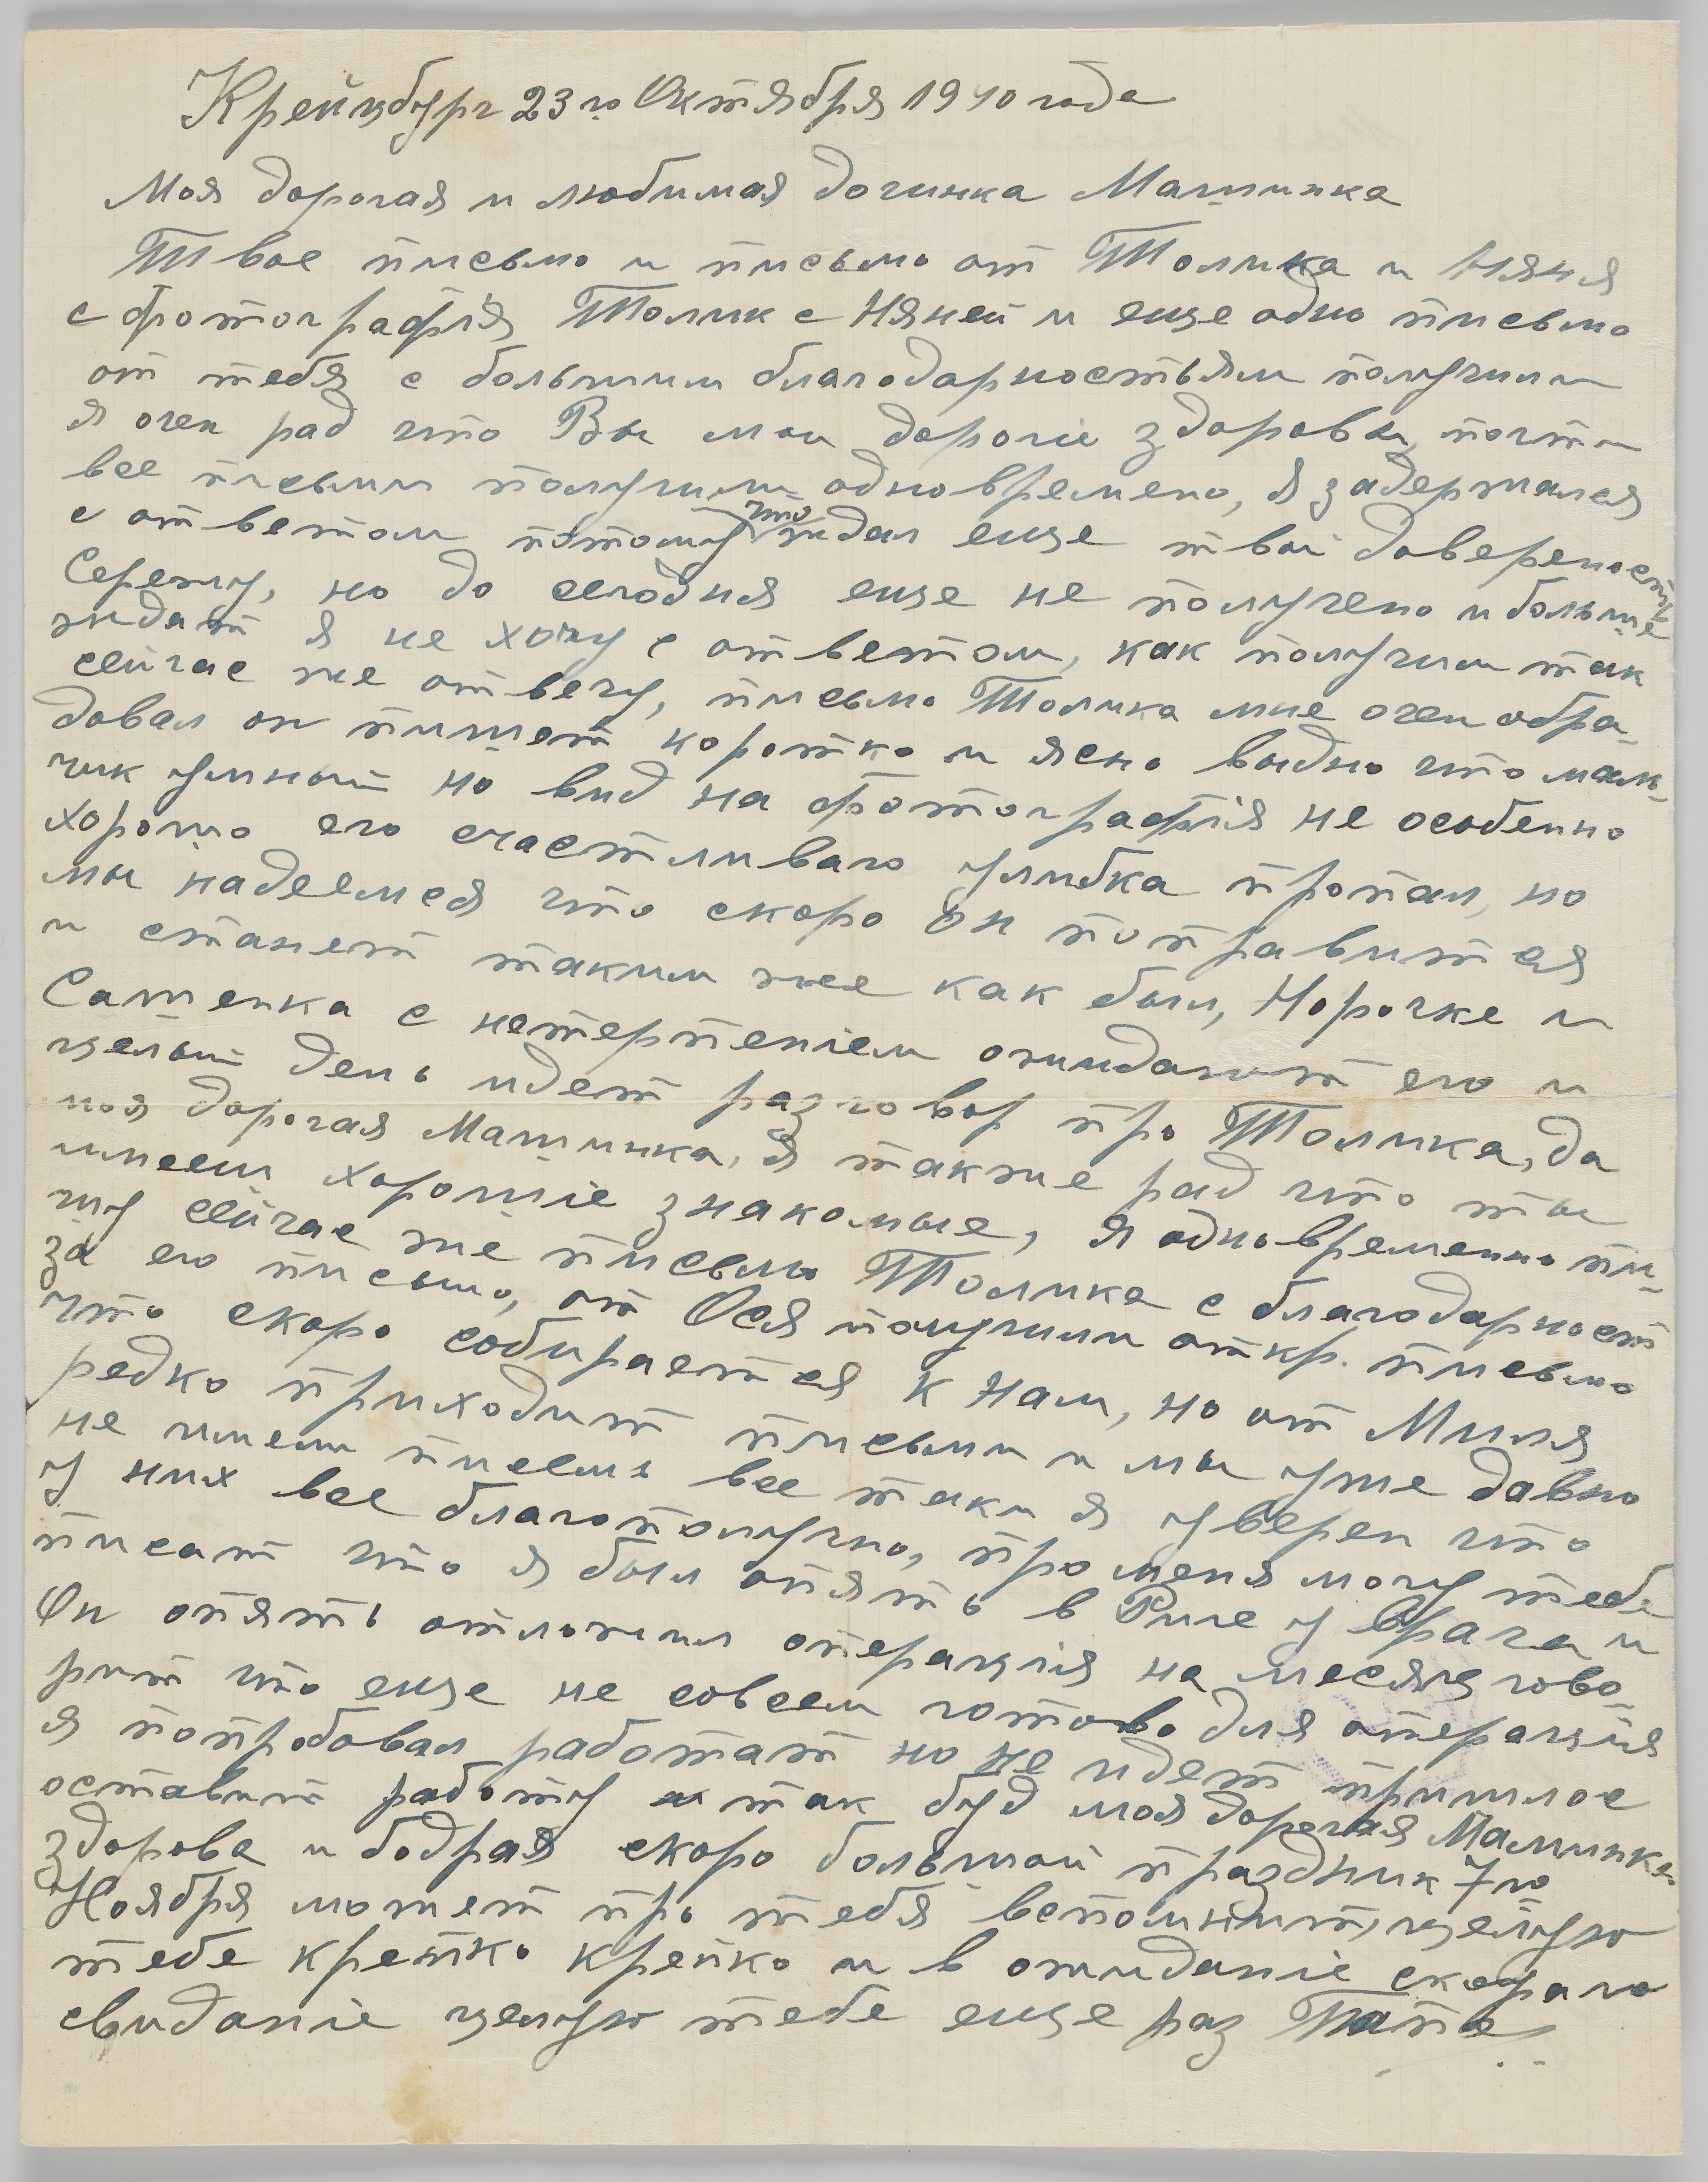 Крейцбург 23го Октября 1940 года
Моя дорогая и любимая дочинка Машинка
Твое письмо и письмо от Толика и Няня
с фотографія Толик с Няней и еще одно письмо
от тебя с большим благодарностьям получили
я очен рад что Вы мои дорогіе здоровы, почти
все письми получили одновремено, я задержался
с ответом потому что ждал еще твой довереность
Сережу, но до сегодня еще не получено и больше
ждат я не хочу с ответом, как получим так
сейчас же отвечу, письмо Толика мне очен обра-
довал он пишет коротко и ясно выдно что маль-
чик умный но вид на фотографія не особенно
хорошо его счастливаго улибка пропал, но
мы надеемся что скоро он поправится
и станет таким же как был, Норочке и
Сашенка с нетерпеніем ожидают его и
целый день идет разговор про Толика, да
моя дорогая Машинка, я также рад что ты
имееш хорошіе знакомые, я одновременно пи-
шу сейчас же письмо Толика с благодарност
за его письмо, от Ося получили откр. письмо
что скоро собирается к нам, но от Миля
редко приходит письми и мы уже давно
не имели писемь все таки я уверен что
у них все благополучно, про меня могу тебе
писат что я был опять в Риге у врача и
Он опять отложил операція на месяц гово-
рит что еще не совсем готово для операція
я попробовал работат но не идет пришлос
оставит работу и так буд моя дорогая Машинка
здорова и бодрая скоро большой праздник 7го
Ноября может про тебя вспомнит, целую
тебе крепко крепко и в ожиданіе скораго
свиданіе целую тебе еще раз Папа